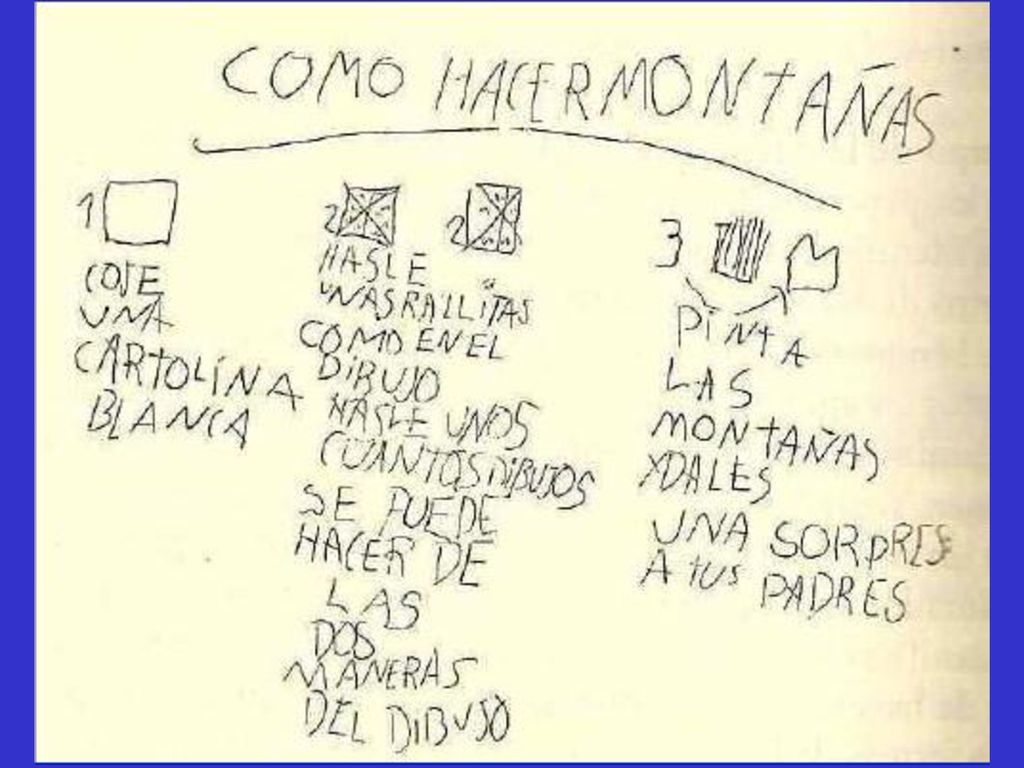 COMO HACER MONTAÑAS
1
COJE
UNA
CARTOLINA
BLANCA
2 2
HASLE
UNAS RALLITAS
COMO EN EL
DIBUJO
HASLE UNOS
CUANTOS DIBUJOS
SE PUEDE
HACER DE
LAS
DOS
MANERAS
DEL DIBUJO
3
PINTA
LAS
MONTAÑAS
Y DALES
UNA SORPRES
A TUS PADRES